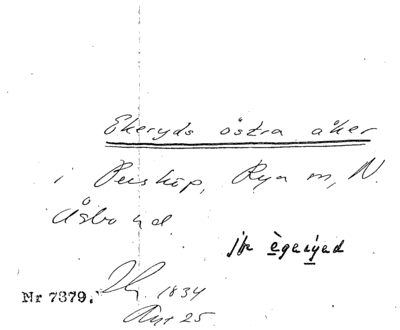 Ekeryds östra åker
i Perstorp, Rya sn, N.
Åsbo hd.
jfr ègeryed
Nr 7379. 1834
Akt 25.